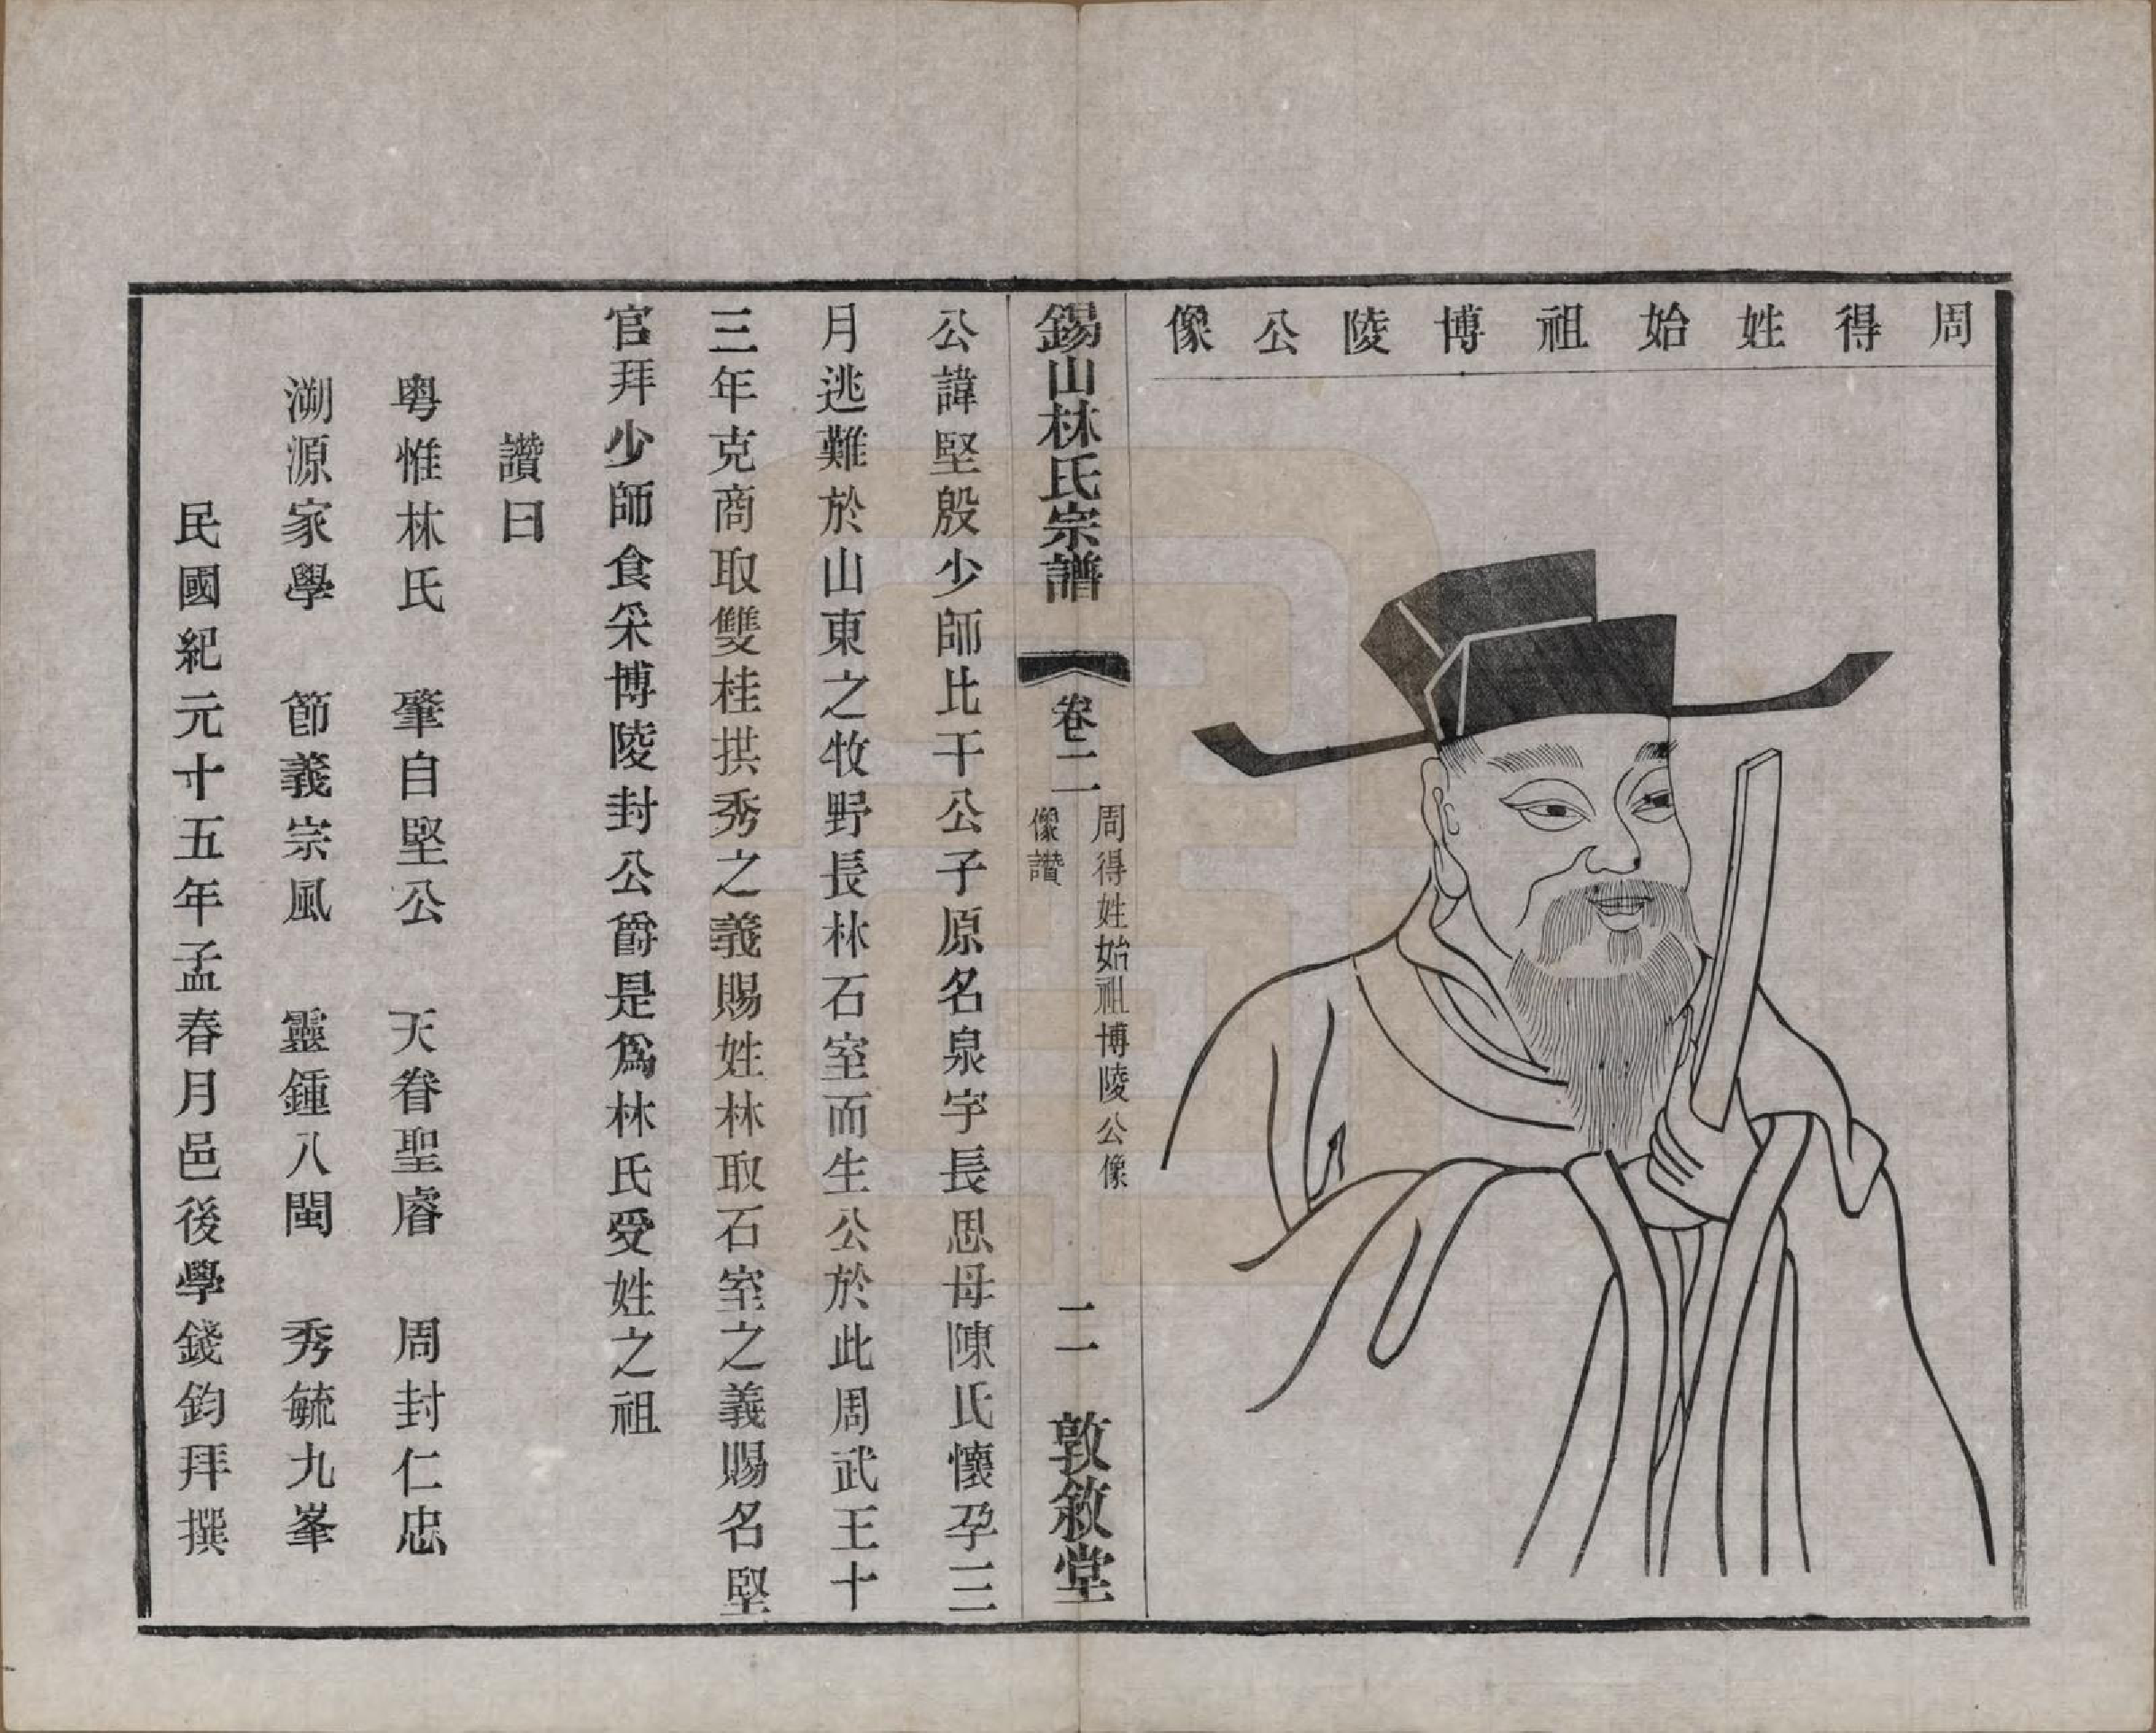 周得姓始祖博陵公像
錫山林氏宗譜
卷二
周得姓始祖博陵公像
像讚
二
敦敘堂
公諱堅殷少師比干公子原名泉字長思母陳氏懷孕三
月逃難於山東之牧野長林石室而生公於此周武王十
三年克商取雙桂拱秀之義賜姓林取石室之義賜名堅
官拜少師食采博陵封公爵是爲林氏受姓之祖
讚曰
粵惟林氏 肇自堅公 天眷聖睿 周封仁忠
溯源家學 節義宗風 靈鍾八閩 秀毓九峯
民國紀元十五年孟春月邑後學錢鈞拜撰